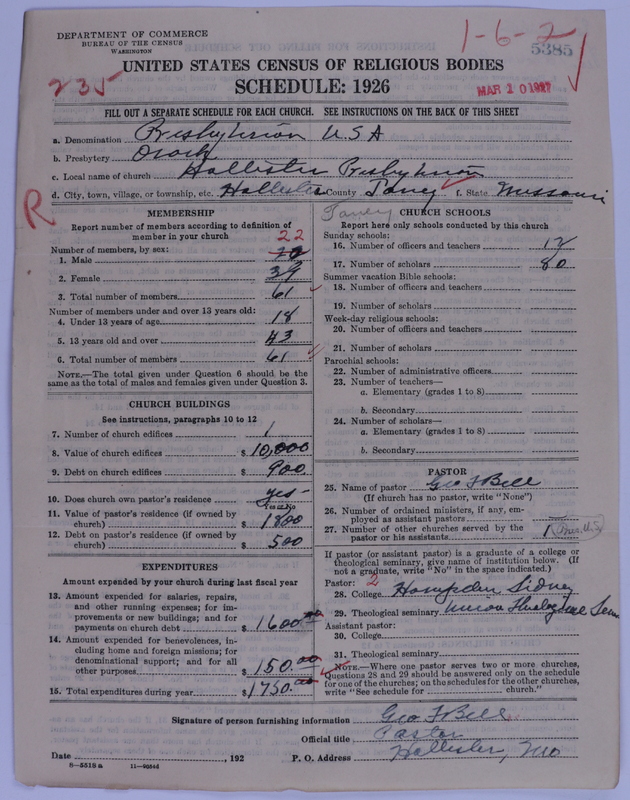 DEPARTMENT OF COMMERCE
BUREAU OF THE CENSUS
WASHINGTON
1-6-2
5385
235
UNITED STATES CENSUS OF RELIGIOUS BODIES
SCHEDULE: 1926
MAR 10 1927
FILL OUT A SEPARATE SCHEDULE FOR EACH CHURCH. SEE INSTRUCTIONS ON THE BACK OF THIS SHEET
a. Denomination Presbyterian U.S.A
b. Presbytery Ozark
c. Local name of church Hollister Presbyterian
d. City, town, village, or township, etc. Hollister County Taney f. State Missouri
R
Taney
MEMBERSHIP
Report number of members according to definition of member in your church
22
Number of members, by sex:
1. Male
2. Female 39
3. Total number of members 61
Number of members under and over 13 years old:
4. Under 13 years of age 18
5. 13 years old and over 43
6. Total number of members 61
NOTE.—The total given under Question 6 should be
same as the total of males and females given under Question 3.
CHURCH BUILDINGS
See instructions, paragraphs 10 to 12
7. Number of church edifices 1
8. Value of church edifices $10,000
9. Debt on church edifices $900
10. Does church own pastor's residence yes
Yes or No
11. Value of pastor's residence (if owned by
church) $1800
12. Debt on pastor's residence (if owned by
church) $500
EXPENDITURES
Amount expended by your church during last fiscal year
13. Amount expended for salaries, repairs,
and other running expenses; for im-
provements or new buildings; and for
payments on church debt $1600.00
14. Amount expended for benevolences, in-
cluding home and foreign missions; for
denominational support; and for all
other purposes $150.00
15. Total expenditures during year $1750.00
CHURCH SCHOOLS
Report here only schools conducted by this church
Sunday schools:
16. Number of officers and teachers 12
17. Number of scholars 80
Summer vacation Bible schools:
18. Number of officers and teachers
19. Number of scholars
Week-day religious schools:
20. Number of officers and teachers
21. Number of scholars
Parochial schools:
22. Number of administrative officers
23. Number of teachers—
a. Elementary (grades 1 to 8)
b. Secondary
24. Number of scholars—
a. Elementary (grades 1 to 8)
b. Secondary
PASTOR
25. Name of pastor Geo F Bell
(If church has no pastor, write "None")
26. Number of ordained ministers, if any, em-
ployed as assistant pastors
27. Number of other churches served by the
pastor or his assistants 1 Pres. U.S.
If pastor (or assistant pastor) is a graduate of a college or
theological seminary, give name of institution below. (If
not a graduate, write "No" in the space indicated.)
Pastor: 2
28. College Hampden Sidney
29. Theological seminary Union Theological Sem
Assistant pastor:
30. College
31. Theological seminary
NOTE.—Where one pastor serves two or more churches,
Questions 28 and 29 should be answered only on the schedule
for one of the churches; on the schedules for the other churches,
write "See schedule for church."
Signature of person furnishing information Geo F Bell
Official title Pastor
Date , 192 P. O. Address Hollister, Mo
8-5518 a 11-9664d